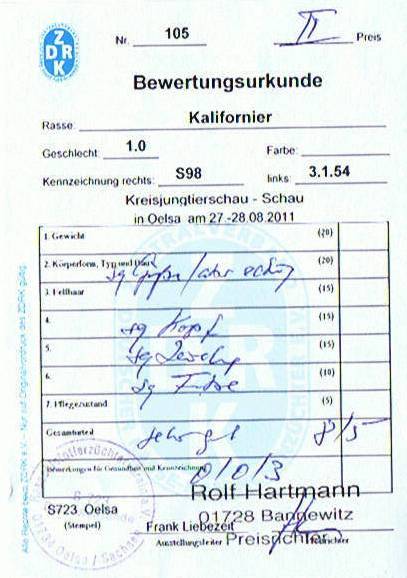 ZDRK
Nr. 105 II Preis
Bewertungsurkunde
Rasse: Kalifornier
Geschlecht: 1.0 Farbe:
Kennzeichnung rechts: S98 links: 3.1.54
Kreisjungtierschau - Schau
in Oelsa am 27.-28.08.2011
1. Gewicht (20)
2. Körperform, Typ und Bau (20)
sg
3. Fellhaar (15)
4. sg Kopf (15)
5. sg (15)
6. sg (10)
7. Pflegezustand (5)
Gesamturteil sehr gut
Bemerkungen für Gesundheit und Kennzeichnung 0/0/3
Rolf Hartmann
S723 Oelsa 01728 Bannewitz
(Stempel) Frank Liebezeit Preisrichter
Ausstellungsleiter
01739 Oelsa / Sachsen
Alle Rechte beim ZDRK e.V. - Nur auf Originalvordruck des ZDRK gültig